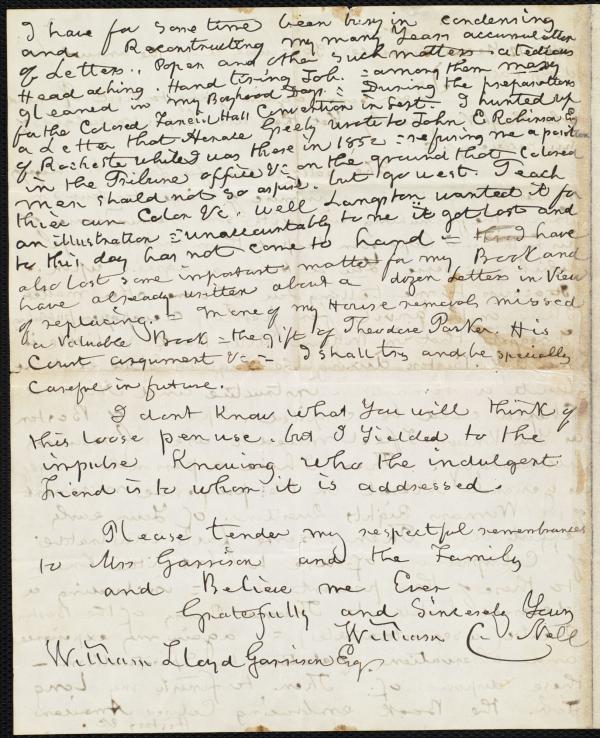 I have for some time been busy in condensing
and Reconstructing my many Years accumulation
of Letters, Papers and other such matters a tedious
Head aching. Hand tiring Job. = among them many
gleaned in my Boyhood Days = During the preparations
for the Colored Faneuil Hall Convention in Sept. I hunted up
a Letter that Horace Greely wrote to John E Robinson Esq
of Rochester while I was there in 1852 = refusing me a position
in the Tribune office &c on the ground that Colored
men should not so aspire. but go west. Teach
their own Color &c. well Langston wanted it for
an illustration = unaccountably to me it got lost and
to this day has not come to hand = I have
also lost some important matter for my Book and
have already written about a dozen Letters in View
of replacing. = In one of my House removals missed
a valuable Book = the gift of Theodore Parker. His
Court argument &c = I shall try and be specially
careful in future.
I dont Know what You will think of
this loose pen use. but I Yielded to the
impulse Knowing who the indulgent
Friend is to whom it is addressed.
Please tender my respectful remembrances
to Mrs Garrison and the Family
and Believe me Ever
Gratefully and Sincerely Yours
William C. Nell
William Lloyd Garrison Esq.